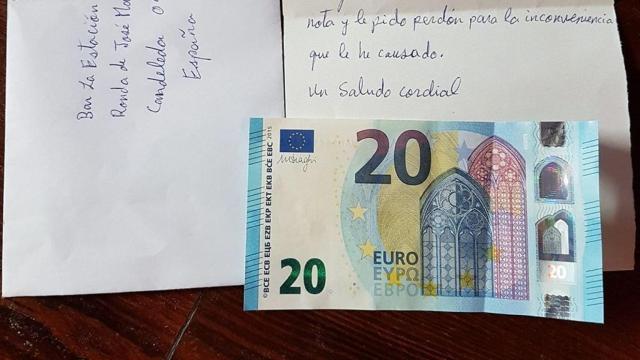 Bar La Estación
Ronda de José
Candeleda
España
nota y le pido perdón para la inconveniencia
que le he causado.
Un Saludo cordial
©BCE ECB ЕЦБ EZB EKP EKT EKB BĊE EBC 2015
20
20
EURO
ΕΥΡΩ
ЕВРО
20